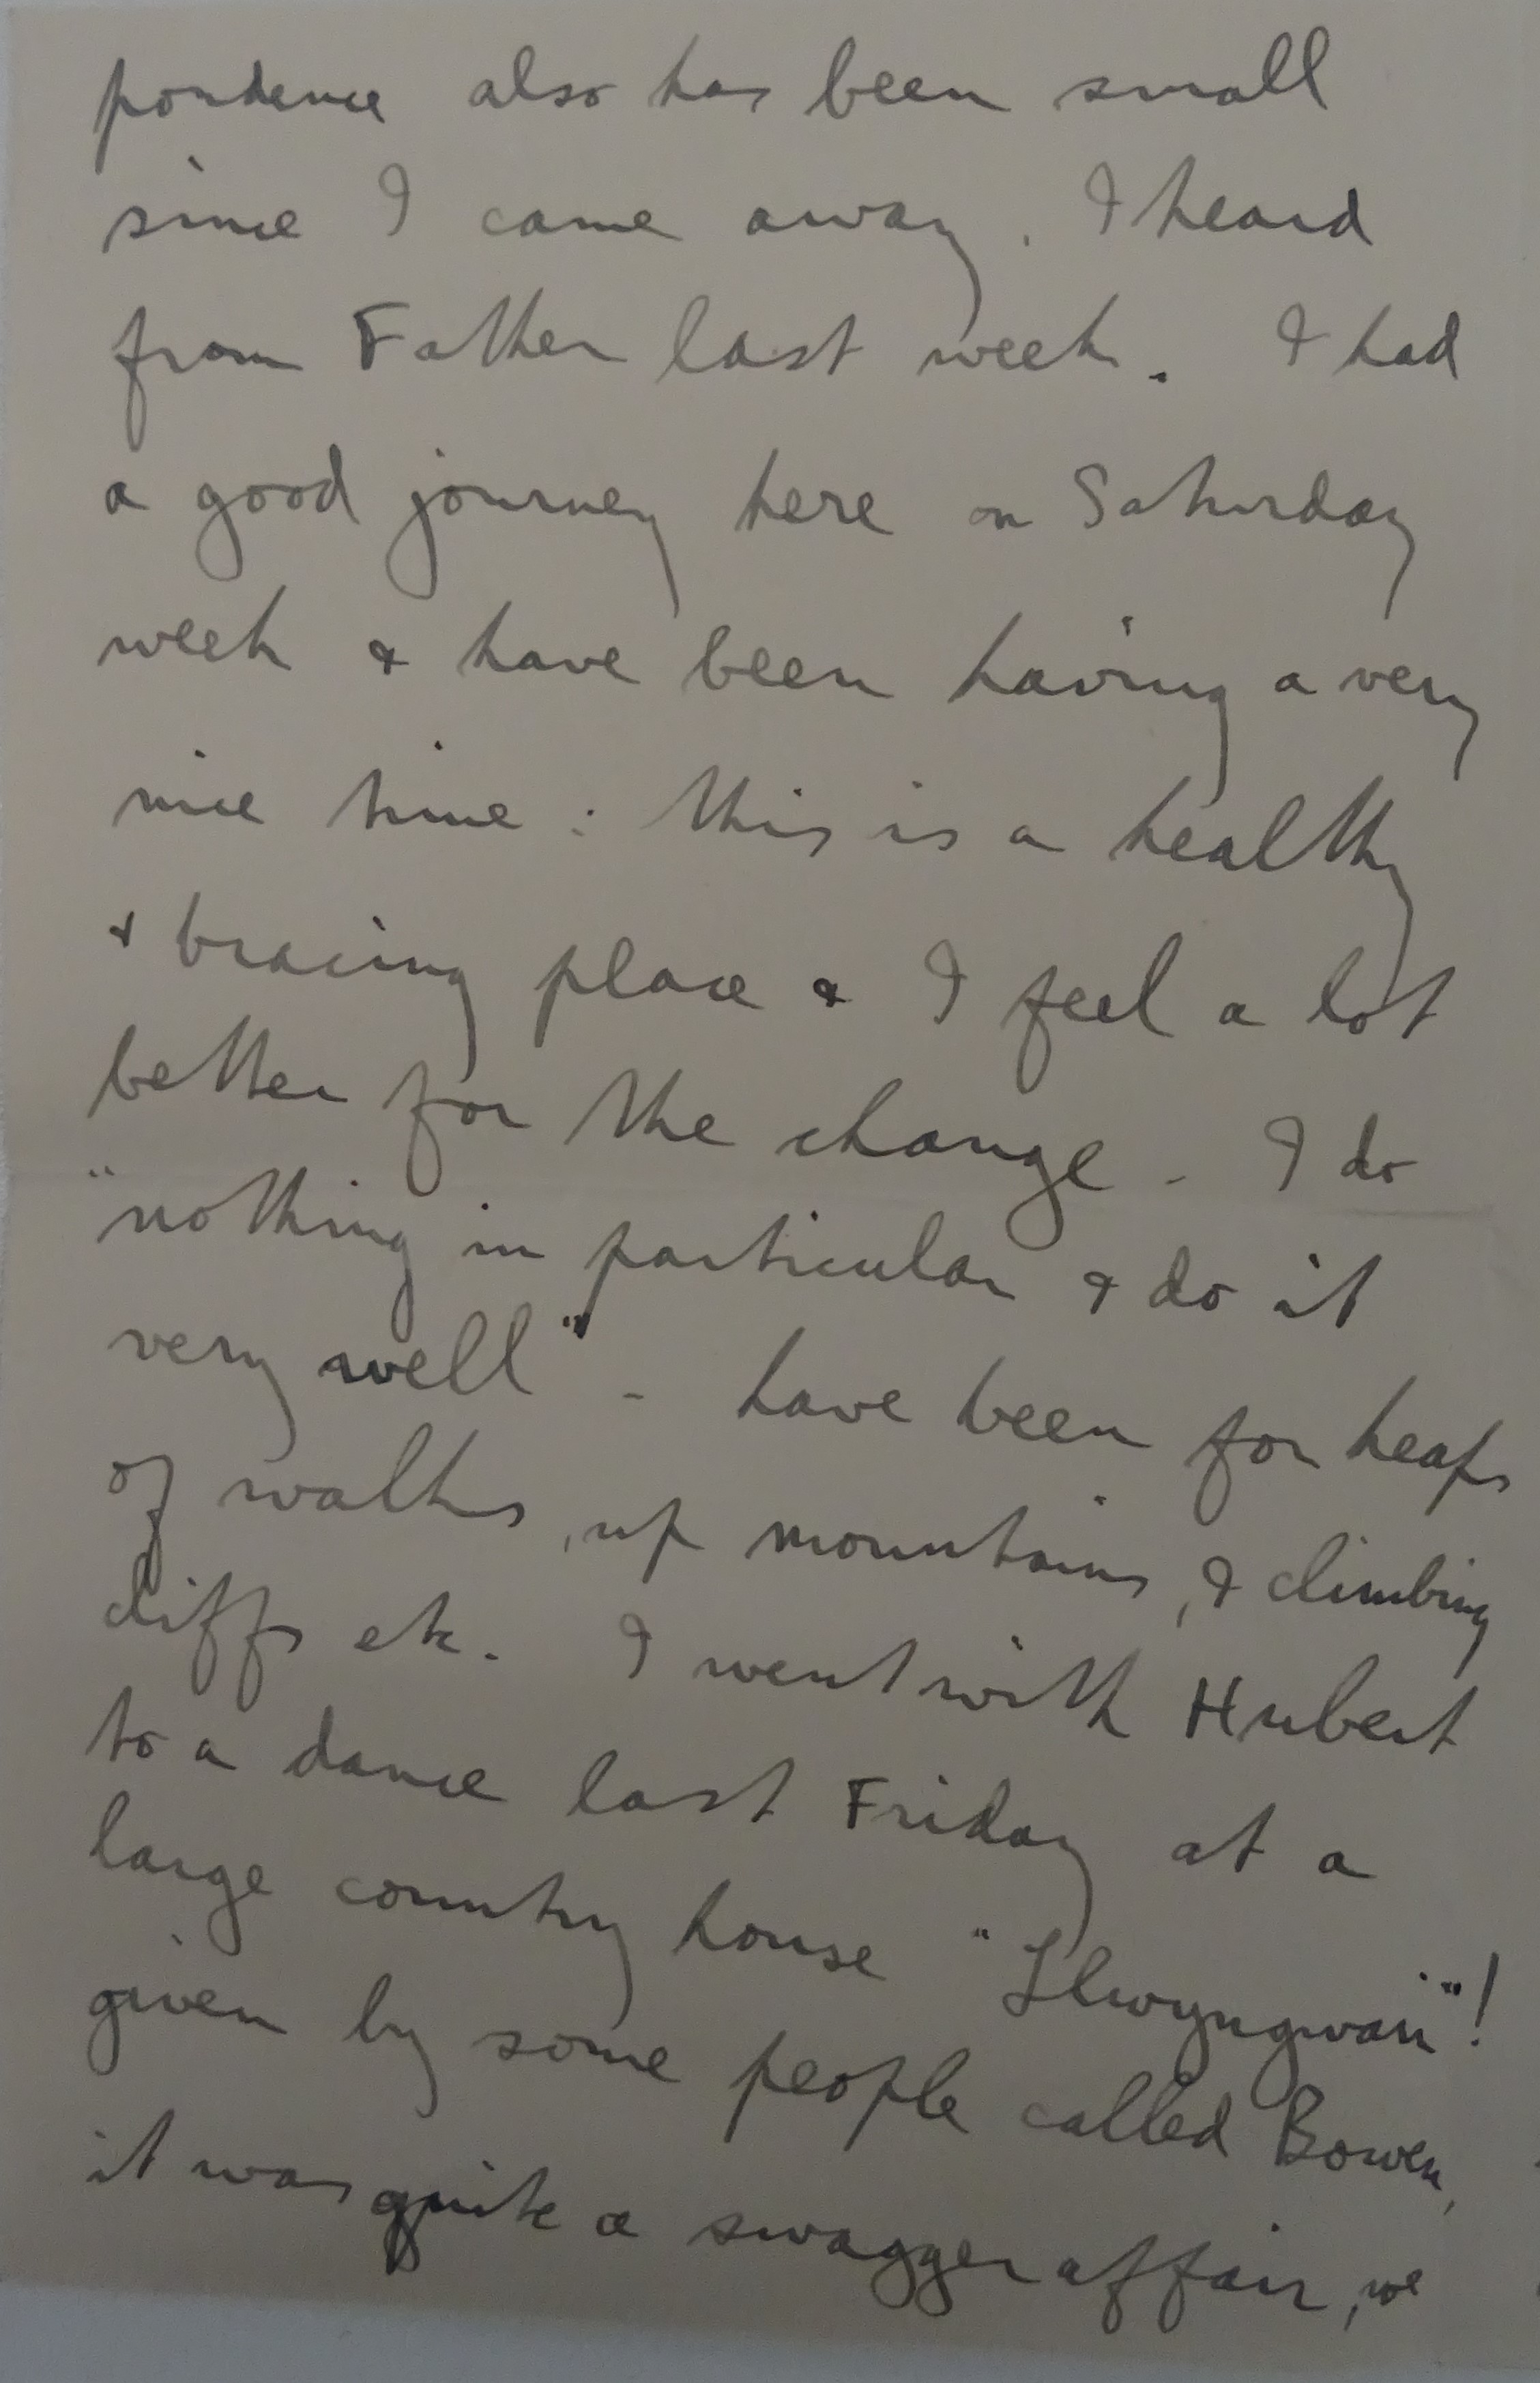 pondence also has been small
since I came away. I heard
from Father last week. I had
a good journey here on Saturday
week & have been having a very
nice time: this is a healthy
& bracing place & I feel a lot
better for the change - I do
"nothing in particular & do it
very well" - have been for heaps
of walks, up mountains, & climbing
cliffs etc. I went with Hubert
to a dance last Friday at a
large country house "Llwyngwair"!
given by some people called Bowen,
it was quite a swagger affair, we